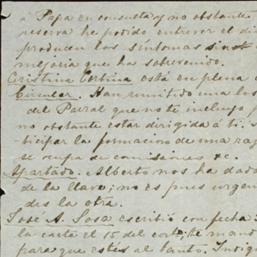 á Papa en consulta y no obstante
reserva he podido entrever el di
producen los síntomas
mejoría que ha sobrevenido.
Cristina Cortina está en plena
Circular. Han remitido una los
del Parral que no te incluyo
no obstante estar dirigida á tí.
ticipar la formacion de una raz
se ocupa de comisiones &c.
Apartado. Alberto nos ha dado
de la llave; no es pues urgen
des la otra.
José A. Sosa escribió con fecha
la carta el 15 del corte; he man
para que estés al tanto. Indiq